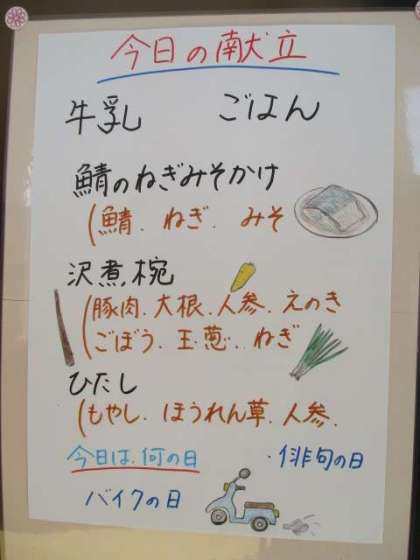 今日の献立
牛乳　ごはん
鯖のねぎみそかけ
(鯖．ねぎ．みそ
沢煮椀
(豚肉．大根．人参．えのき
ごぼう．玉葱．ねぎ
ひたし
(もやし．ほうれん草．人参．
今日は何の日　・俳句の日
バイクの日